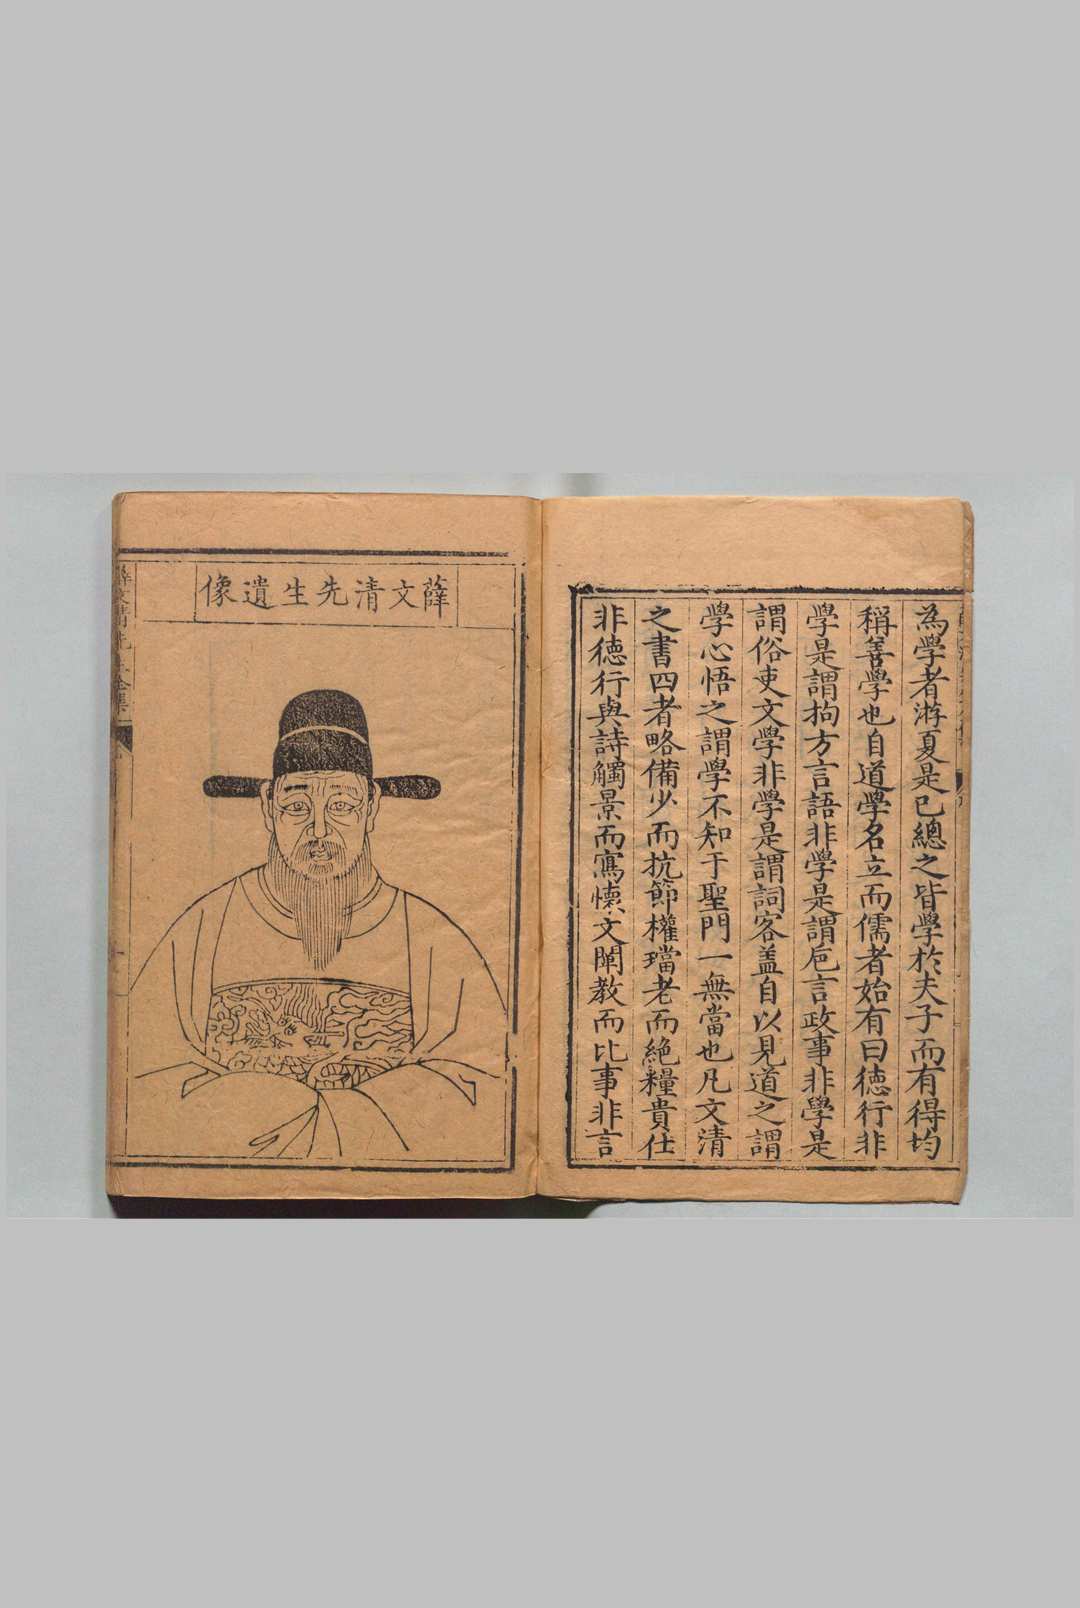 為學者游夏是已總之皆學於夫子而有得均
稱善學也自道學名立而儒者始有曰德行非
學是謂拘方言語非學是謂巵言政事非學是
謂俗吏文學非學是謂詞客盖自以見道之謂
學心悟之謂學不知于聖門一無當也凡文清
之書四者略備少而抗節權璫老而絕糧貴仕
非德行與詩觸景而寫懷文闡教而比事非言
薛文清先生遺像